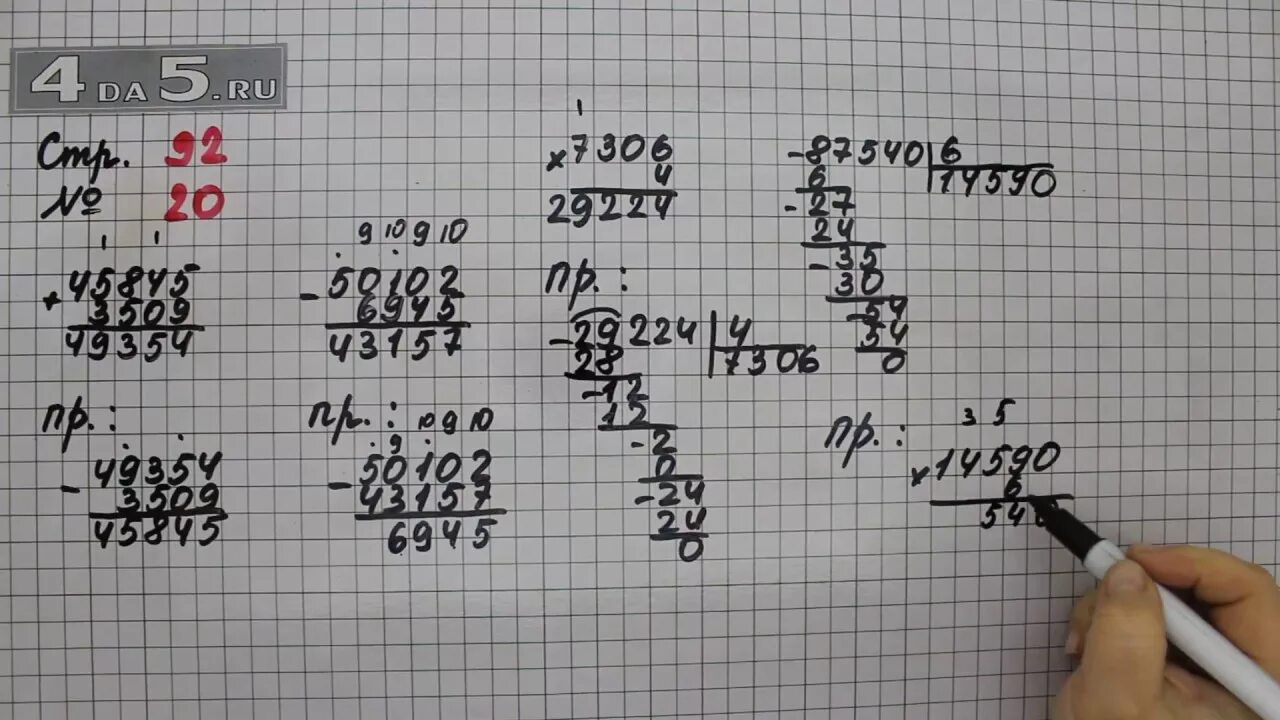 4 DA 5.RU
Стр. 92
№ 20
1 1
+ 45845
3509
49354
пр.:
- 49354
3509
45845
9 10 9 10
- 50102
6945
43157
пр.: 10 9 10
9
- 50102
43157
6945
1
× 7306
4
29224
пр.:
- 29224 | 4
28 7306
- 12
12
- 2
0
- 24
24
0
- 87540 | 6
6 14590
- 27
24
- 35
30
- 54
54
0
пр.:
3 5
× 14590
6
540